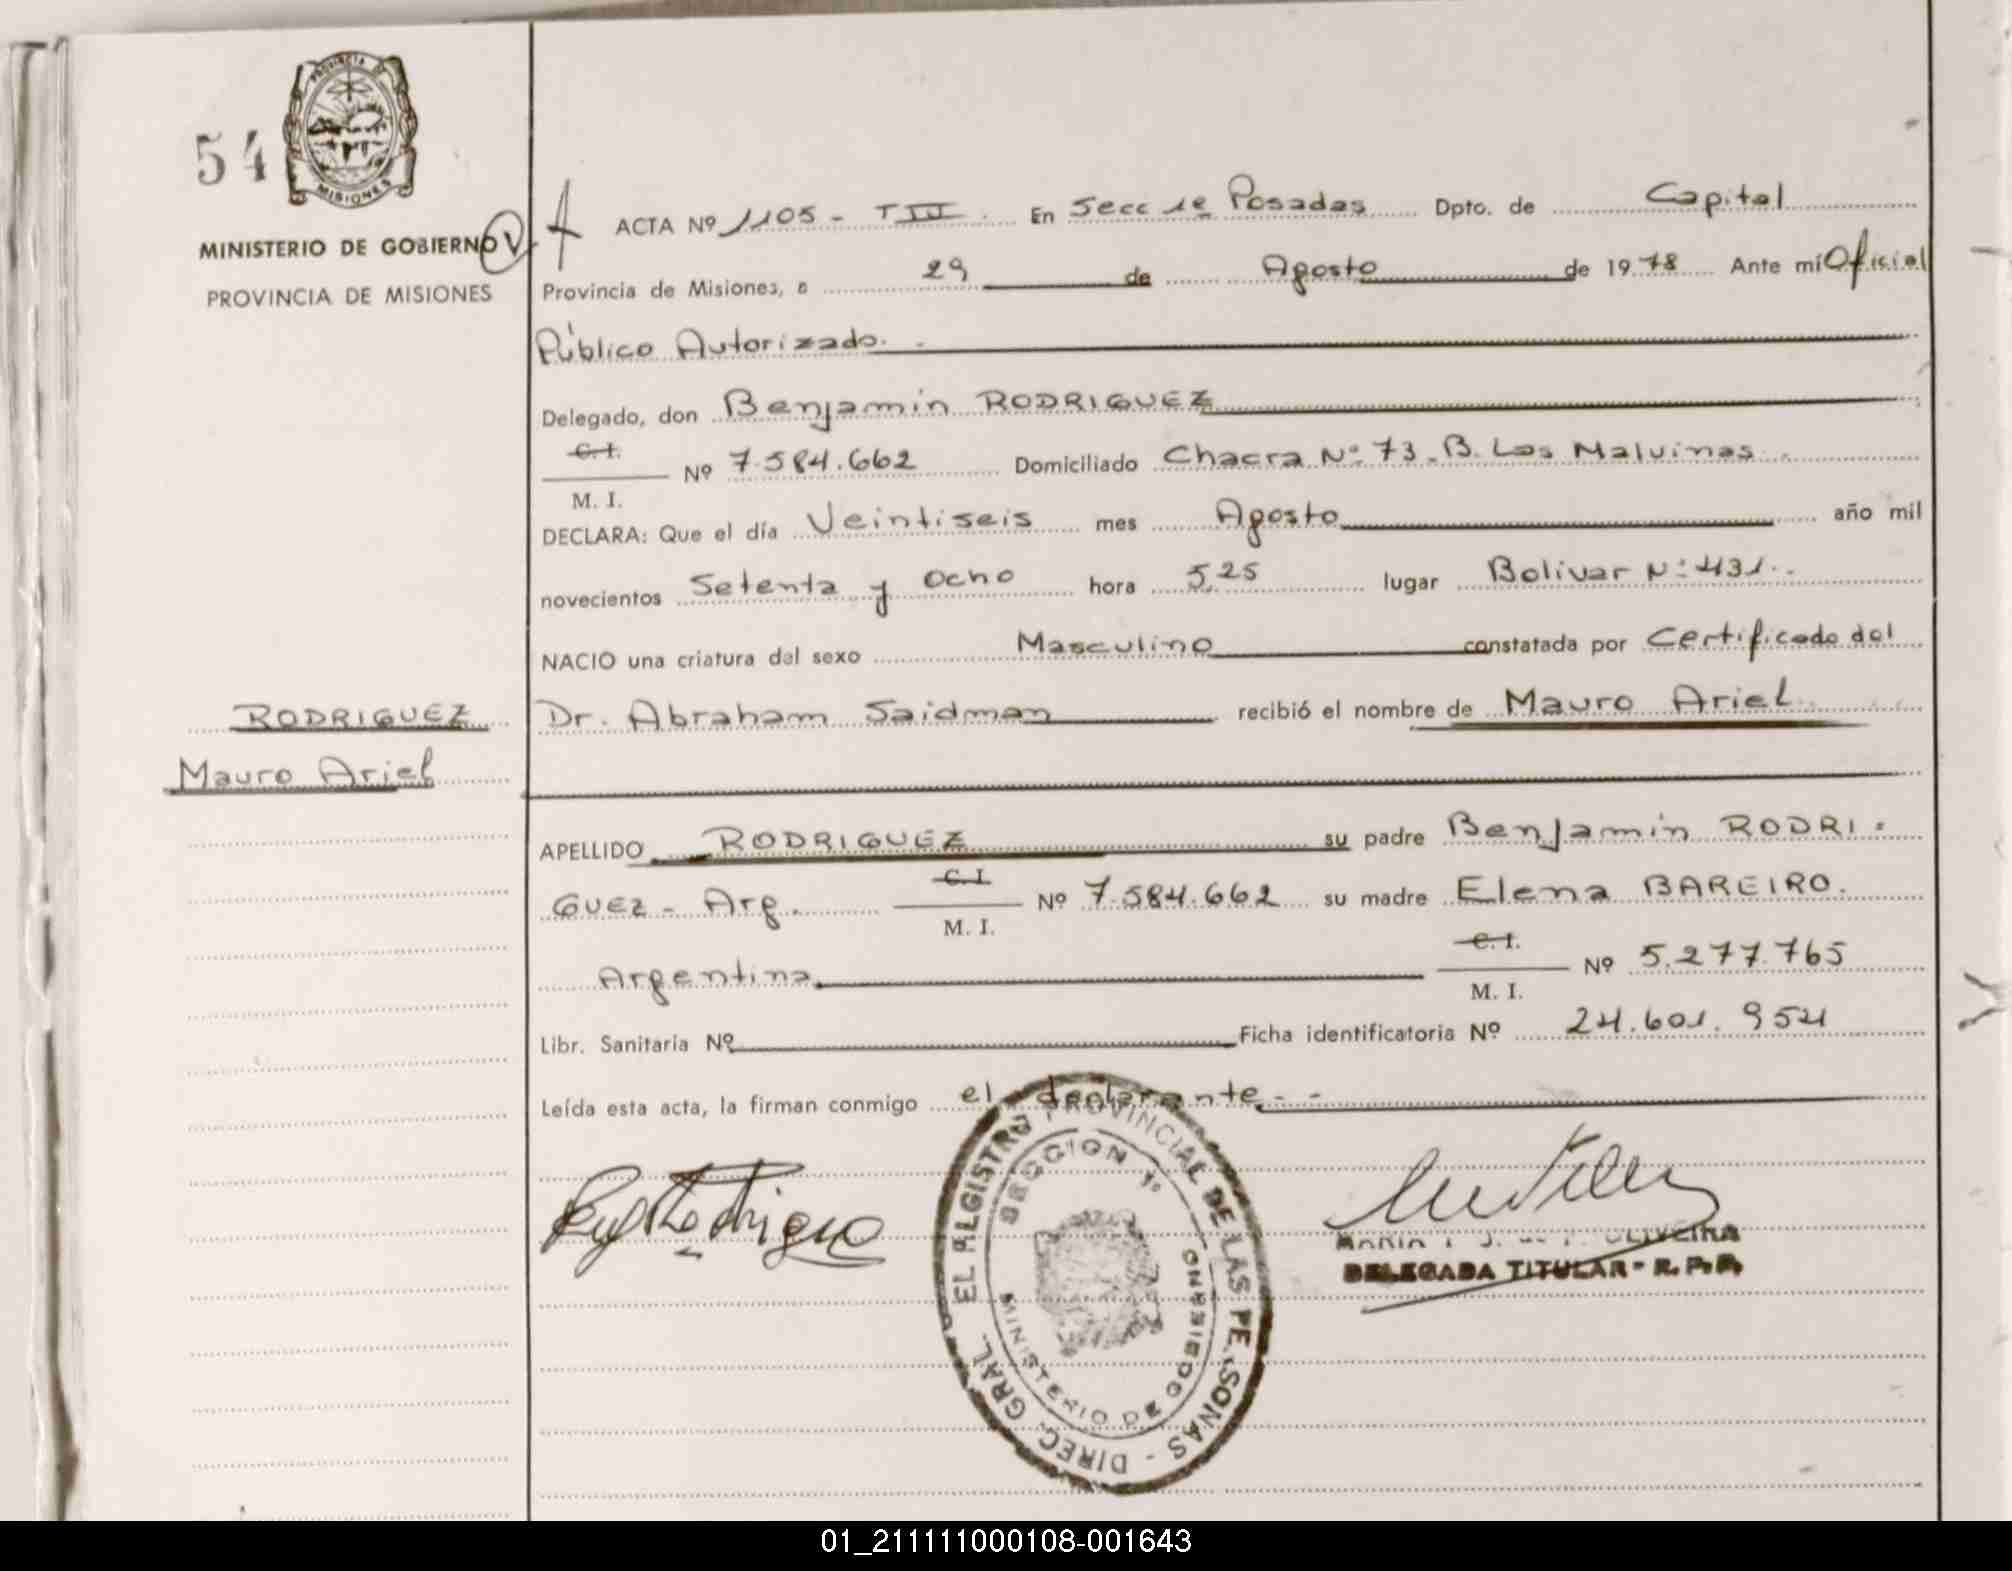 54
PROVINCIA DE
MISIONES
MINISTERIO DE GOBIERNO V
PROVINCIA DE MISIONES
ACTA Nº 1105 - TIII. En Secc 1ª Posadas Dpto. de Capital
Provincia de Misiones, a 29 de Agosto de 1978 Ante mí Oficial
Público Autorizado.
Delegado, don Benjamin RODRIGUEZ
C.I.
M. I. Nº 7.584.662 Domiciliado Chacra Nº 73. B. Las Malvinas
DECLARA: Que el día Veintiseis mes Agosto año mil
novecientos Setenta y Ocho hora 5,25 lugar Bolivar Nº 431.
NACIO una criatura del sexo Masculino constatada por Certificado del
Dr. Abraham Saidman recibió el nombre de Mauro Ariel
RODRIGUEZ
Mauro Ariel
APELLIDO RODRIGUEZ su padre Benjamin RODRI-
GUEZ - Arg. C.I. M. I. Nº 7.584.662 su madre Elena BAREIRO.
Argentina C.I. M. I. Nº 5.277.765
Libr. Sanitaria Nº Ficha identificatoria Nº 24.601.954
Leída esta acta, la firman conmigo el declarante.-
DIREC. GRAL. EL REGISTRO PROVINCIAL DE LAS PERSONAS -
SECCION 1ª
MINISTERIO DE GOBIERNO
OLIVEIRA
DELEGADA TITULAR - R. P. P.
01_211111000108-001643